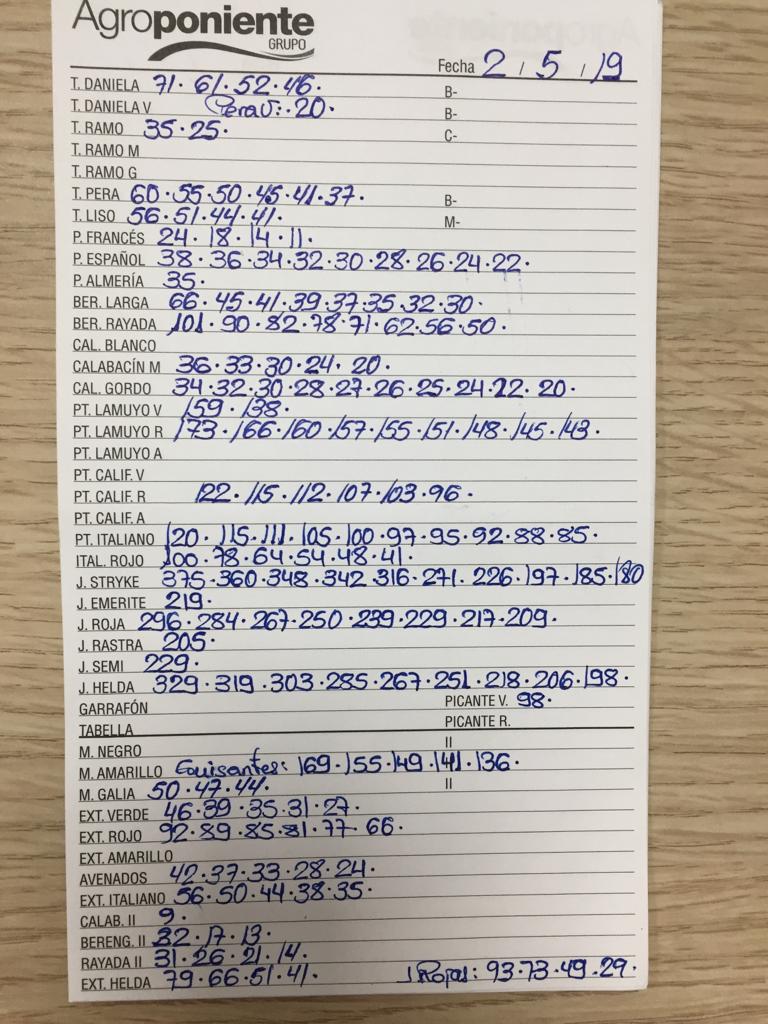 Agroponiente
GRUPO
Fecha 2 / 5 / 19
T. DANIELA 71. 61. 52. 46. B-
T. DANIELA V Pera V: 20. B-
T. RAMO 35. 25. C-
T. RAMO M
T. RAMO G
T. PERA 60. 55. 50. 45. 41. 37. B-
T. LISO 56. 51. 44. 41. M-
P. FRANCÉS 24. 18. 14. 11.
P. ESPAÑOL 38. 36. 34. 32. 30. 28. 26. 24. 22.
P. ALMERÍA 35.
BER. LARGA 66. 45. 41. 39. 37. 35. 32. 30.
BER. RAYADA 101. 90. 82. 78. 71. 62. 56. 50.
CAL. BLANCO
CALABACÍN M 36. 33. 30. 24. 20.
CAL. GORDO 34. 32. 30. 28. 27. 26. 25. 24. 22. 20.
PT. LAMUYO V 159. 138.
PT. LAMUYO R 173. 166. 160. 157. 155. 151. 148. 145. 143.
PT. LAMUYO A
PT. CALIF. V
PT. CALIF. R 122. 115. 112. 107. 103. 96.
PT. CALIF. A
PT. ITALIANO 120. 115. 111. 105. 100. 97. 95. 92. 88. 85.
ITAL. ROJO 100. 78. 64. 54. 48. 41.
J. STRYKE 375. 360. 348. 342. 316. 271. 226. 197. 185. 180
J. EMERITE 219.
J. ROJA 296. 284. 267. 250. 239. 229. 217. 209.
J. RASTRA 205.
J. SEMI 229.
J. HELDA 329. 319. 303. 285. 267. 251. 218. 206. 198.
GARRAFÓN PICANTE V. 98.
TABELLA PICANTE R.
M. NEGRO II
M. AMARILLO Guisantes: 169. 155. 149. 141. 136.
M. GALIA 50. 47. 44. II
EXT. VERDE 46. 39. 35. 31. 27.
EXT. ROJO 92. 89. 85. 81. 77. 66.
EXT. AMARILLO
AVENADOS 42. 37. 33. 28. 24.
EXT. ITALIANO 56. 50. 44. 38. 35.
CALAB. II 9.
BERENG. II 32. 17. 13.
RAYADA II 31. 26. 21. 14.
EXT. HELDA 79. 66. 51. 41. J Rojas: 93. 73. 49. 29.